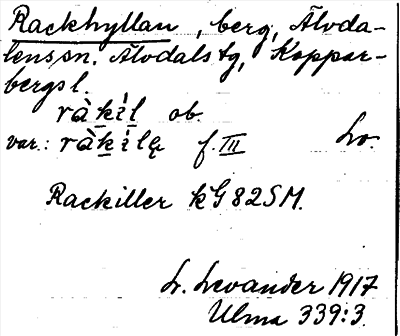 Rackhyllan, berg, Älvda-
lens sn. Älvdals tg, Koppar-
bergs l.
ràkìl ob.
var.: ràkìlą f. III Lo.
Rackiller kG 82SM.
L. Levander 1917
Ulma 339:3.